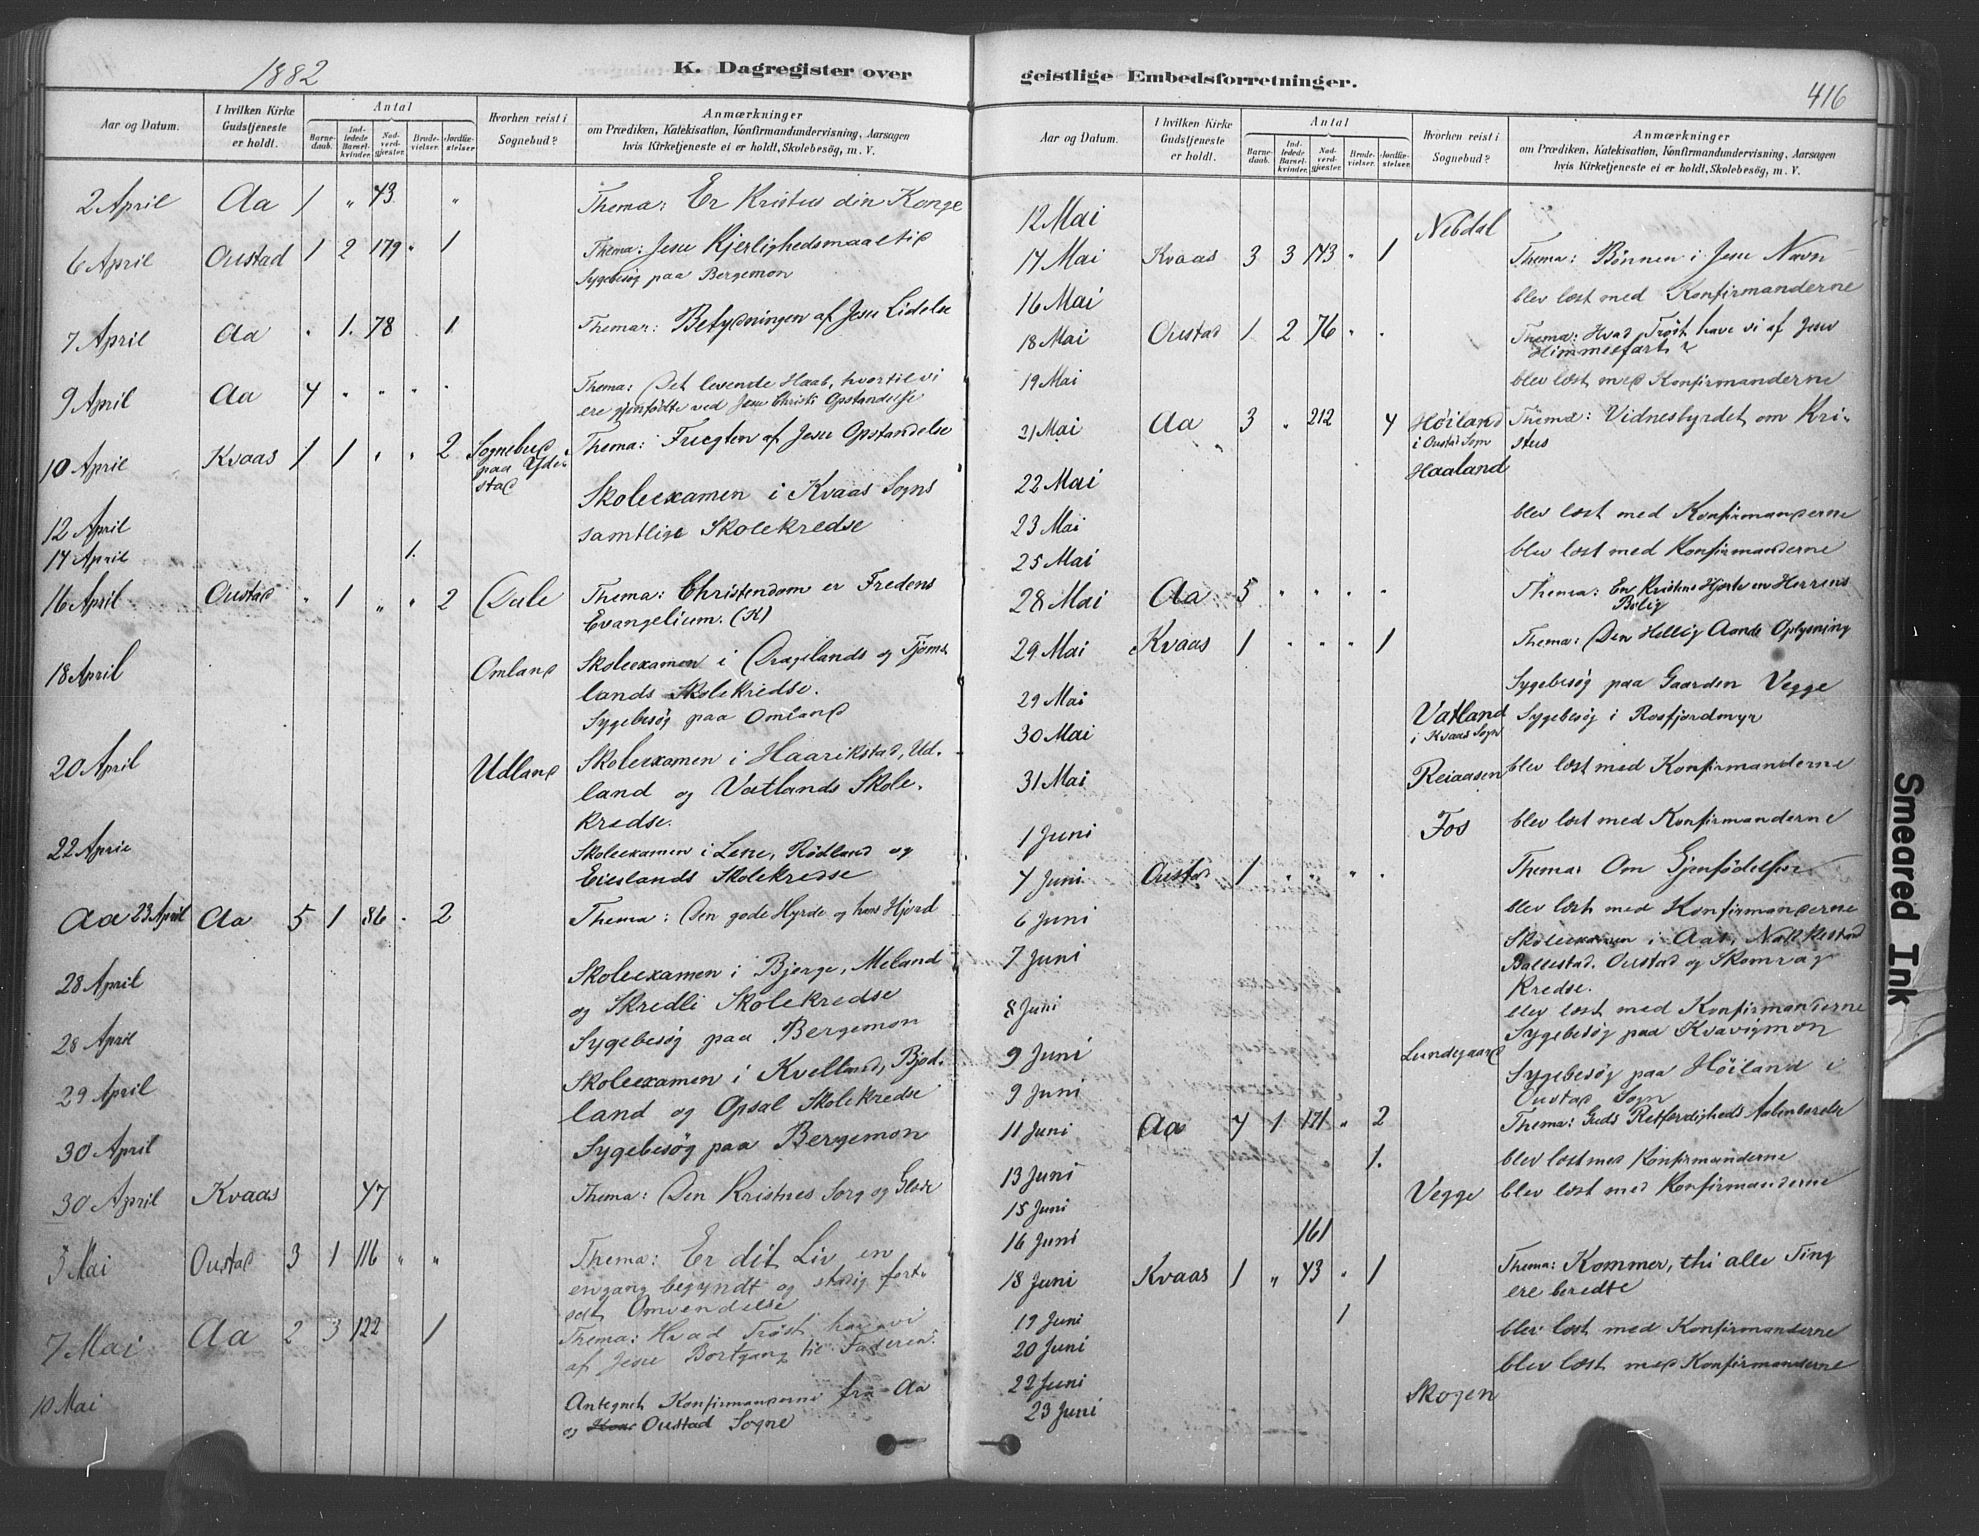 1882
K. Dagregister over
Aar og Datum. I hvilken Kirke Gudstjeneste er holdt. Antal Barnedaab. Indledede Barselkvinder. Nadverdgjester. Brudevielser. Jordfæstelser. Hvorhen reist i Sognebud? Anmærkninger
om Prædiken, Katekisation, Konfirmandundervisning, Aarsagen
hvis Kirketjeneste ei er holdt, Skolebesög, m. V.
2 April Aa 1 " 43 " Thema: Er Kristus din Konge
6 April Oustad 1 2 179 " 1 Thema: Jesu Kjerlighedsmaaltid
Sygebesøg paa Bergemon
7 April Aa " 1. 78 1 Themar: Betydningen af Jesu Lidelse
9 April Aa 4 " " " " Thema: Det levende Haab, hvortil vi
ere gjenfødte ved Jesu Christi Opstandelse
10 April Kvaas 1 1 " " 2 Sognebud Thema: Frugten af Jesu Opstandelse
paa Yde-
stad
12 April Skoleexamen i Kvaas Sogns
samtlige Skolekredse
14 April 1.
16 April Oustad " 1 " " 2 Dale Thema: Christendom er Fredens
Evangelium. (K)
18 April Omland Skoleexamen i Dragelands og Tjoms
lands Skolekredse.
Sygebesøg paa Omland
20 April Udland Skoleexamen i Haarikstad, Ud-
land og Vatlands Skole-
kredse.
22 April Skoleexamen i Lene, Rødland og
Eieslands Skolekredse
Aa 23 April Aa 5 1 86 . 2 Thema: Den gode Hyrde og hans Hjord
28 April Skoleexamen i Bjerge, Meland
og Skredli Skolekredse
28 April Sygebesøg paa Bergemon
29 April Skoleexamen i Kvelland, Bjød-
land og Opsal Skolekredse
30 April Sygebesøg paa Bergemon
30 April Kvaas 47 Thema: Den Kristnes Sorg og Glæde
5 Mai Oustad 3 1 116 " " Thema: Er dit Liv en
engang begyndt og stadig fort-
sat Omvendelse
7 Mai Aa 2 3 122 1 Thema: Hvad Trøst have vi
af Jesu Bortgang til Faderen
10 Mai Antegnet Konfirmanderne fra Aa
og Oustad Sogne
geistlige Embedsforretninger.
416
Aar og Datum. I hvilken Kirke Gudstjeneste er holdt. Antal Barnedaab. Indledede Barselkvinder. Nadverdgjester. Brudevielser. Jordfæstelser. Hvorhen reist i Sognebud? Anmærkninger
om Prædiken, Katekisation, Konfirmandundervisning, Aarsagen
hvis Kirketjeneste ei er holdt, Skolebesög, m. V.
12 Mai Nebdal
14 Mai Kvaas 3 3 143 " 1 Thema: Bønnen i Jesu Navn
16 Mai blev læst med Konfirmanderne
18 Mai Oustad 1 2 76 " " Thema: Hvad Trøst have vi af Jesu
Himmelfart?
19 Mai blev læst med Konfirmanderne
21 Mai Aa 3 " 212 4 Høiland Thema: Vidnesbyrdet om Kri-
i Oustad Sogn stus
22 Mai Haaland
23 Mai blev læst med Konfirmanderne
25 Mai blev læst med Konfirmanderne
28 Mai Aa 5 " " " " Thema: En Kristens Hjerte en Herrens
Bolig
29 Mai Kvaas 1 " " " 1 Thema: Den Hellig Aands Oplysning
29 Mai Sygebesøg paa Gaarden Vegge
30 Mai Vatland Sygebesøg i Rosfjordmyr
i Kvaas Sogn
31 Mai Reiaasen blev læst med Konfirmanderne
1 Juni Fos blev læst med Konfirmanderne
4 Juni Oustad 1 " " " " Thema: Om Gjenfødelsen
6 Juni blev læst med Konfirmanderne
7 Juni Skoleexamen i Aas, Nakkestad
Ballestad. Oustad og Skomrag
Kredse.
8 Juni blev læst med Konfirmanderne
9 Juni Lundegaard Sygebesøg paa Kvavigmon
9 Juni Sygebesøg paa Høiland i
Oustad Sogn
11 Juni Aa 4 1 171 " 2 Thema: Guds Retfærdigheds Aabenbarelse
13 Juni 1. blev læst med Konfirmanderne
15 Juni Vegge blev læst med Konfirmanderne
16 Juni 161
18 Juni Kvaas 1 " 43 " 1 Thema: Kommer, thi alle Ting
ere beredte
19 Juni 1
20 Juni blev læst med Konfirmanderne
22 Juni blev læst med Konfirmanderne
23 Juni Skogen
Smeared Ink